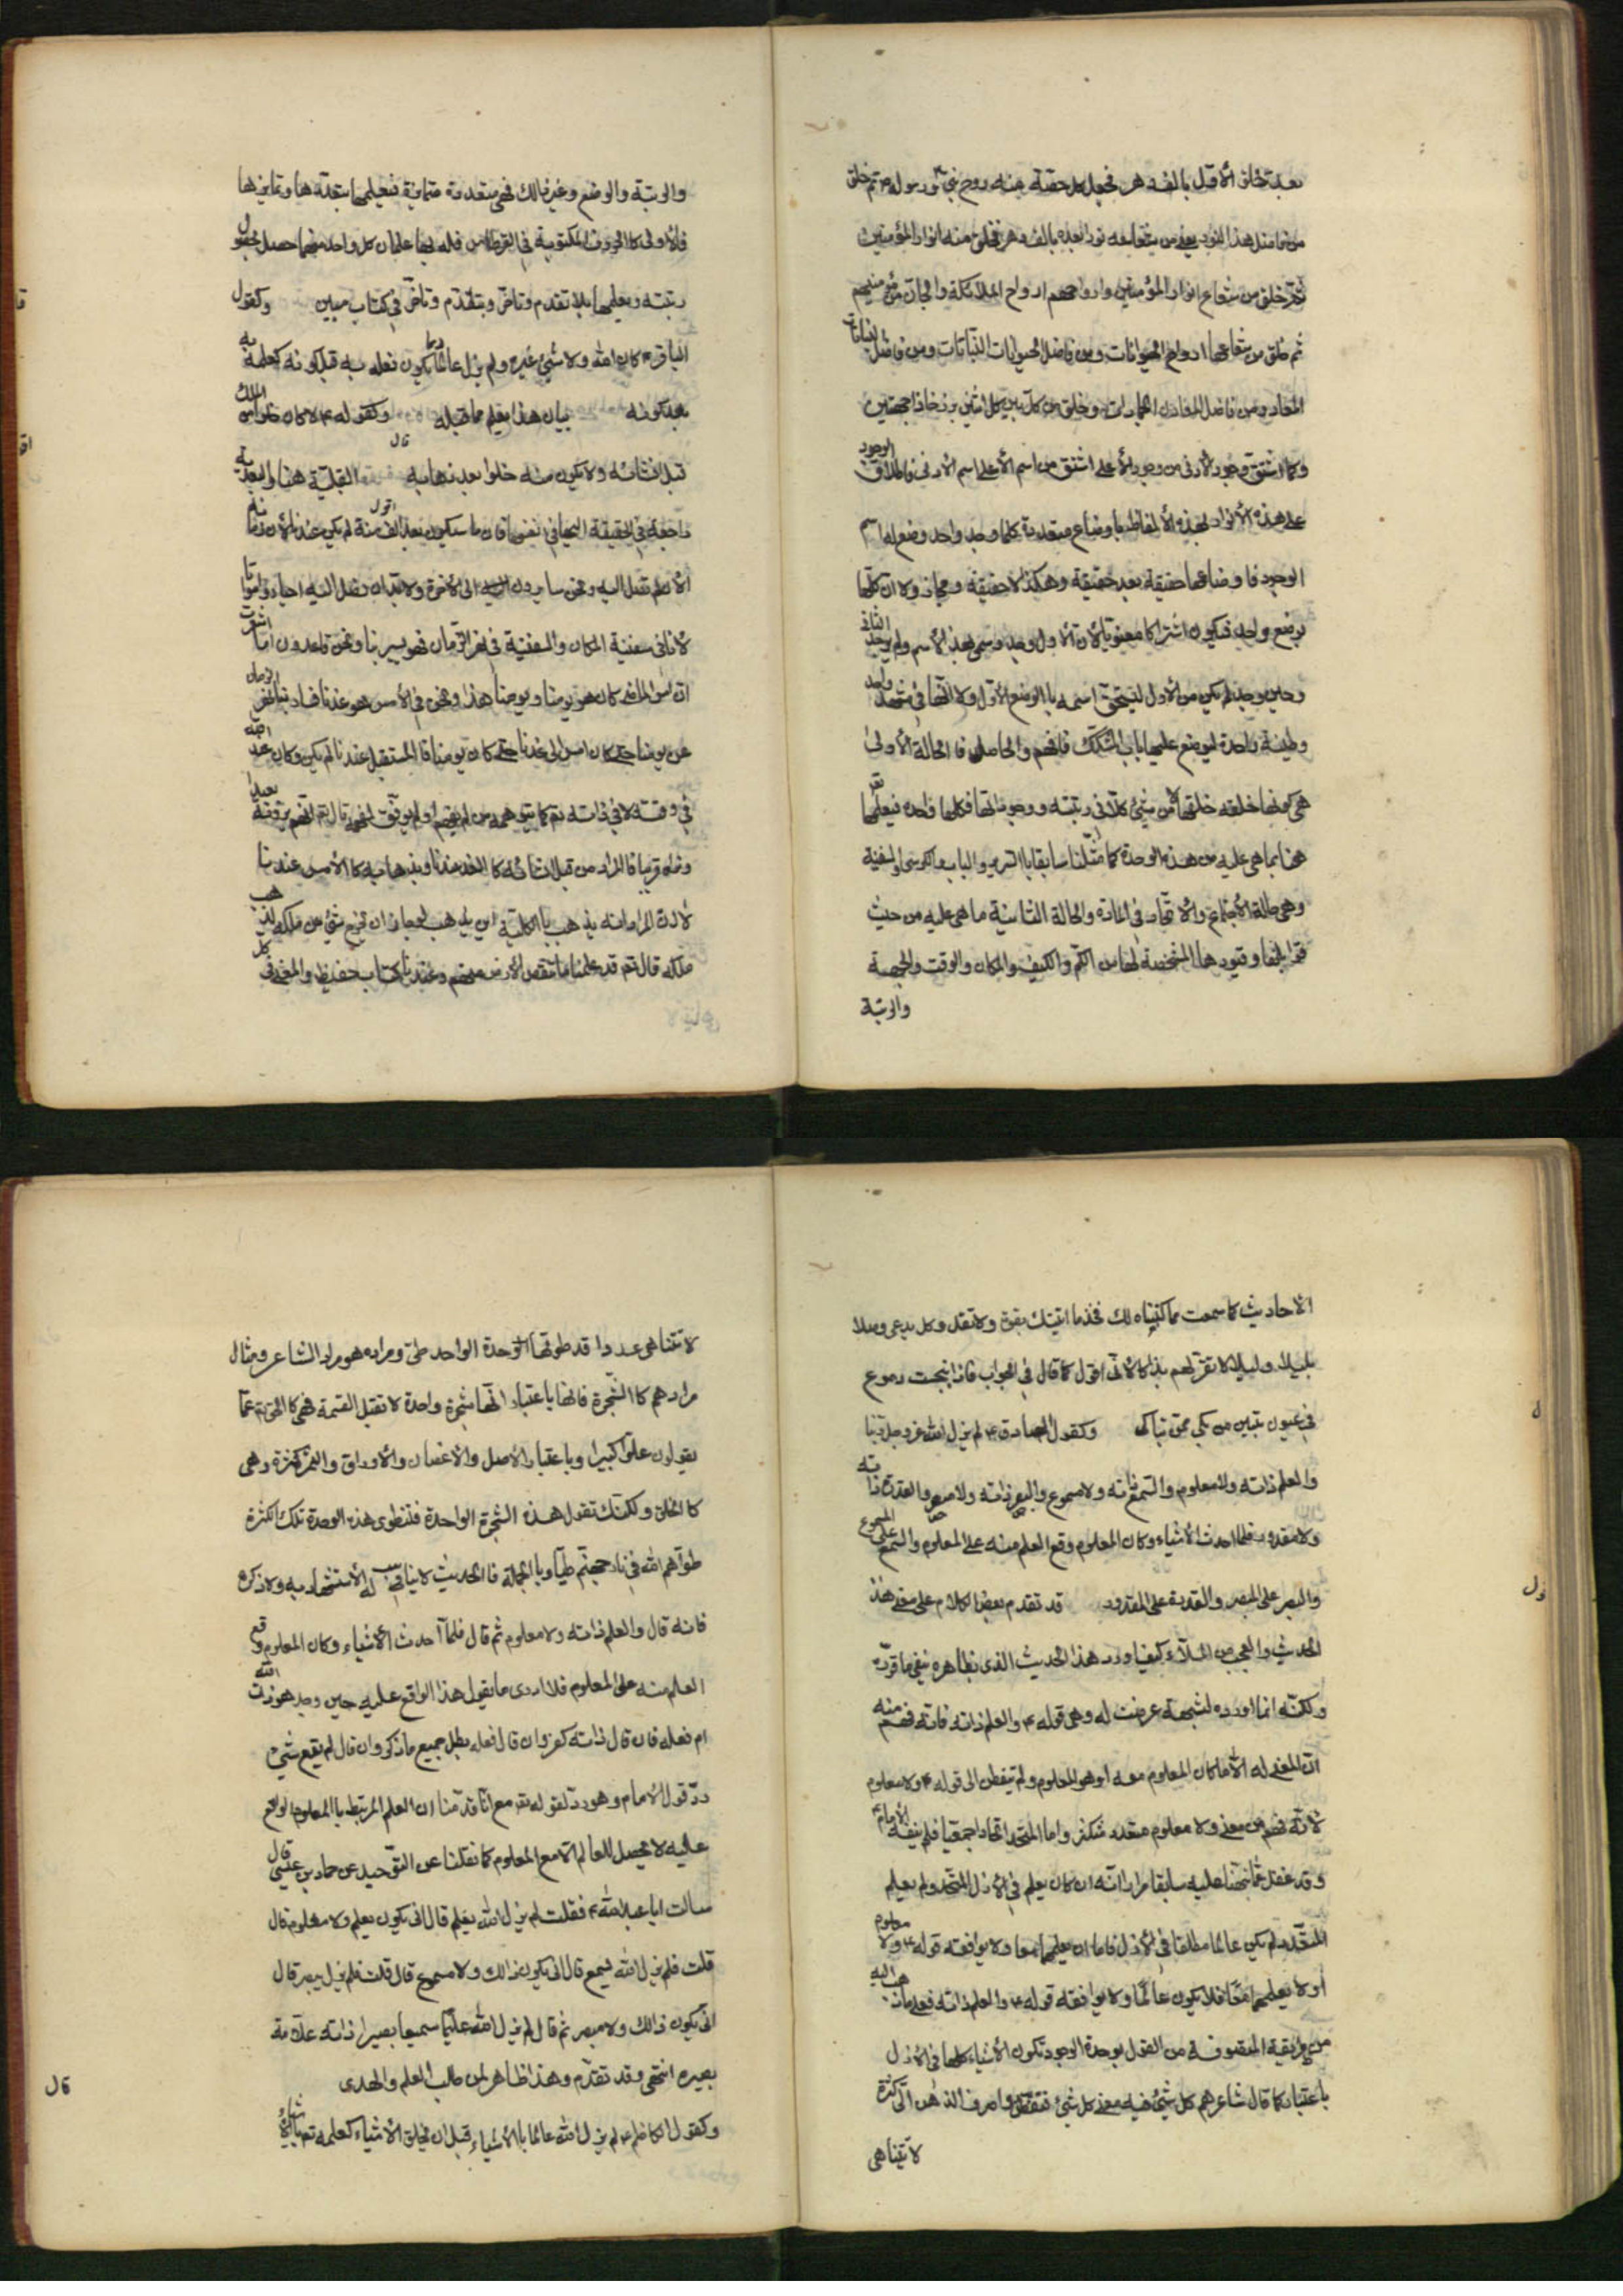 بعد خلق الأول بألف دهر فجعل كل حصة منه روح نبي و رسول ثم خلق
من فاضل هذا النور يعني من شعاعه نورا بعده بألف دهر فخلق منه انوار المؤمنين
ثم خلق من شعاع انوار المؤمنين وارواحهم ارواح الملائكة والجان
ثم خلق من شعاعها ارواح الحيوانات ومن فاضل الحيوانات النباتات ومن فاضل النباتات
المعادن ومن فاضل المعادن الجمادات وخلق من كل بين كل اثنين برزخا ذا جهتين
وكما اشتق وجود الأدنى من وجود الأعلى اشتق من اسم الأعلى اسم الأدنى فاطلاق الوجود
على هذه الأفراد لهذه الألفاظ باوضاع متعددة كلما وجد واحد وضع له اسم
الوجود فاوضاعها حقيقة بعد حقيقة وهكذا لا حقيقة ومجاز ولا ان كلها
بوضع واحد فيكون اشتراكا معنويا لأن الأول وجد وسمي بهذا الأسم ولم يوجد الثاني
وحين وجد لم يكن من الأول ليستحق اسمه بالوضع الأول ولا انها في صقع واحد
وطينة واحدة ليوضع عليها باب التشكك فافهم والحاصل فالحالة الأولى
هي كونها خلقه خلقها لا من شيء كلا في رتبته ووجوداتها فكلها واحد فيعلمها
هنا بما هي عليه من هذه الوحدة كما مثلنا سابقا بالسرير والباب والكرسي والسفينة
وهي حالة الأجتماع والأتحاد في المادة والحالة الثانية ما هي عليه من حيث
تمايزها وقيودها المشخصة لها من الكم والكيف والمكان والوقت والجهة
والرتبة
والرتبة والوضع وغير ذالك فهي متعددة متمايزة فيعلمها بتعددها وتمايزها
فالأولى كالحروف المكتوبة في القرطاس فله بها علمان كل واحد منهما حصل بحصول
رتبته ويعلمها بلا تقدم وتأخر وبتقدم وتأخر في كتاب مبين وكقول
الباقر ع كان الله ولا شيء غيره ولم يزل عالما بما يكون فعلمه به قبل كونه كعلمه به
بعد كونه بيان هذا يعلم مما قبله وكقوله ع لا كان خلوا من الملك
قبل انشائه ولا يكون منه خلوا بعد ذهابه القبلية هنا والبعدية
قال
راجعة في الحقيقة اليها في انفسها فان ما سيكون بعد الف سنة لم يكن عندنا الأن
اقول
الأن لم تصل اليه ونحن سايرون الى الأخرة ولا بد ان نصل اليه احياء وامواتا
لأنا في سفينة المكان والسفينة في نهر الزمان فهو يسير بنا ونحن قاعدون اما شعرت
ان امس الماضي كان هو يومنا ويومنا هذا ونحن في الأمس هو غدنا فسار بنا نهر الزمان
عن يومنا حتى كان امس الى غدنا حتى كان يومنا فالمستقبل عندنا لم يكن وكان عند الله
في وقته لا في ذاته تع كما يتوهمه من لم يفهم ولم يوفق لفهمه قال تع انهم يرونه بعيدا
ونراه قريبا فالمراد من قبل انشائه كالغد عندنا وبذهابه كالأمس عندنا
لا ان المراد انه يذهب بالكلية اين يذهب ايجاز ان يخرج شيء من ملكه لذهب
ملكه قال تع قد علمنا ما تنقص الأرض منهم وعندنا كتاب حفيظ والمعنى في كل
الأحاديث كما سمعت مما كتبناه لك فخذ ما اتيتك بقوة ولا تقل وكل يدعي وصلا
بليلى وليلى لا تقر لهم بذاكا لأني اقول كما قال في الجواب فاذا انبجست دموع
في عيون تبين من بكى ممن تباكى وكقول الصادق ع لم يزل الله عز وجل ربنا
والعلم ذاته ولا معلوم والسمع ذاته ولا مسموع والبصر ذاته ولا مبصر والقدرة ذاته
ولا مقدور فلما احدث الأشياء وكان المعلوم وقع العلم منه على المعلوم والسمع على المسموع
والبصر على المبصر والقدرة على المقدور قد تقدم بعض الكلام على معنى هذا
الحديث والعجب من الملا كيف اورد هذا الحديث الذي بظاهره ينفي ما قرره
ولكنه انما اورده لشبهة عرضت له وهي قوله ع والعلم ذاته فانه فهم منه
ان المعنى له الا ما كان المعلوم معه او هو المعلوم ولم يتفطن الى قوله ع ولا معلوم
لأنه فهم من معنى ولا معلوم متعدد متكثر واما المتحد اتحادا جمعيا فلم ينفه الأمام ع
وقد غفل عما نبهنا عليه سابقا مرارا انه ان كان يعلم في الأزل المتحد ولم يعلم
المتعدد لم يكن عالما مطلقا في الأزل فاما ان يعلمهما معا ولا يوافقه قوله ع ولا معلوم
او لا يعلمهما معا فلا يكون عالما ولا يوافقه قوله ع والعلم ذاته فعلى ما ذهب اليه
من طريقة المتصوفة من القول بوحدة الوجود تكون الأشياء كلها في الأزل
باعتبار كما قال شاعرهم كل شيء فيه معنى كل شيء فتفطن واصرف الذهن الي كثرة
لا تتناهى
لا تتناهى عددا قد طوتها وحدة الواحد طي ومراده هو مراد الشاعر ومثال
مرادهم كالشجرة فانها باعتبار انها شجرة واحدة لا تقبل القسمة فهي كالحق تع عما
يقولون علوا كبيرا وباعتبار الأصل والأغصان والأوراق والثمر كثرة وهي
كالخلق ولكنك تقول هذه الشجرة الواحدة فتنطوي هذه الوحدة تلك الكثرة
طواهم الله في نار جهنم طيا وبالجملة فالحديث لا يناسب له الأستشهاد به ولا ذكره
فانه قال والعلم ذاته ولا معلوم ثم قال فلما احدث الأشياء وكان المعلوم وقع
العلم منه على المعلوم فلا ادري ما يقول هذا الواقع عليه حين وجد هو ذات الله
ام فعله فان قال ذاته كفر وان قال فعله بطل جميع ما ذكر وان قال لم يقع شيء
رد قول الأمام وهو رد لقوله تع مع انا قدمنا ان العلم المرتبط بالمعلوم الواقع
عليه لا يحصل للعالم الا مع المعلوم كما نقلنا عن التوحيد عن حماد بن عيسى قال
سالت ابا عبد الله ع فقلت لم يزل الله يعلم قال انى يكون يعلم ولا معلوم قال
قلت فلم يزل الله يسمع قال انى يكون ذالك ولا مسموع قال قلت فلم يزل يبصر قال
انى يكون ذالك ولا مبصر ثم قال لم يزل الله عليما سميعا بصيرا ذاته علامة
بصيرة انتهى وقد تقدم وهذا ظاهر لمن طلب العلم والهدى
وكقول الكاظم ع لم يزل الله عالما بالأشياء قبل ان يخلق الأشياء كعلمه بالأشياء
قال